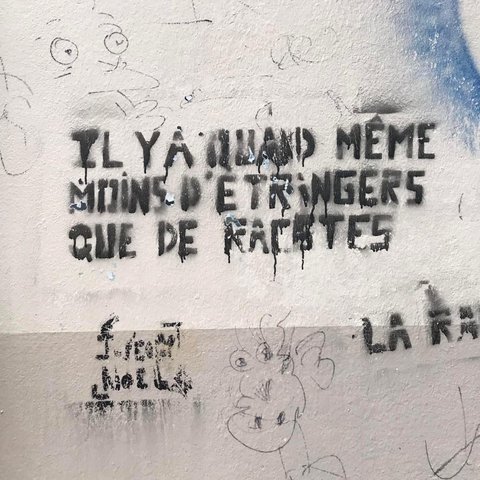 IL Y A QUAND MÊME
MOINS D'ETRANGERS
QUE DE RACISTES
LA RA
NOEL